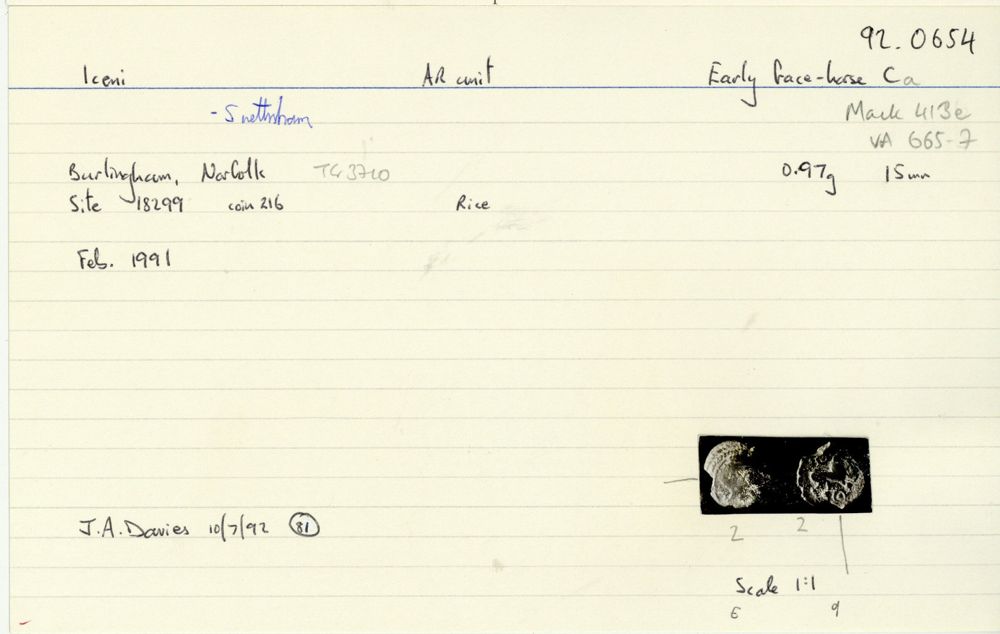 92.0654
Iceni AR unit Early face-horse Ca
- Snettisham Mack 413e
VA 665-7
Burlingham, Norfolk TG3710 0.97g 15mm
Site 18299 coin 216 Rice
Feb. 1991
J.A. Davies 10/7/92 81
2 2
Scale 1:1
6 9